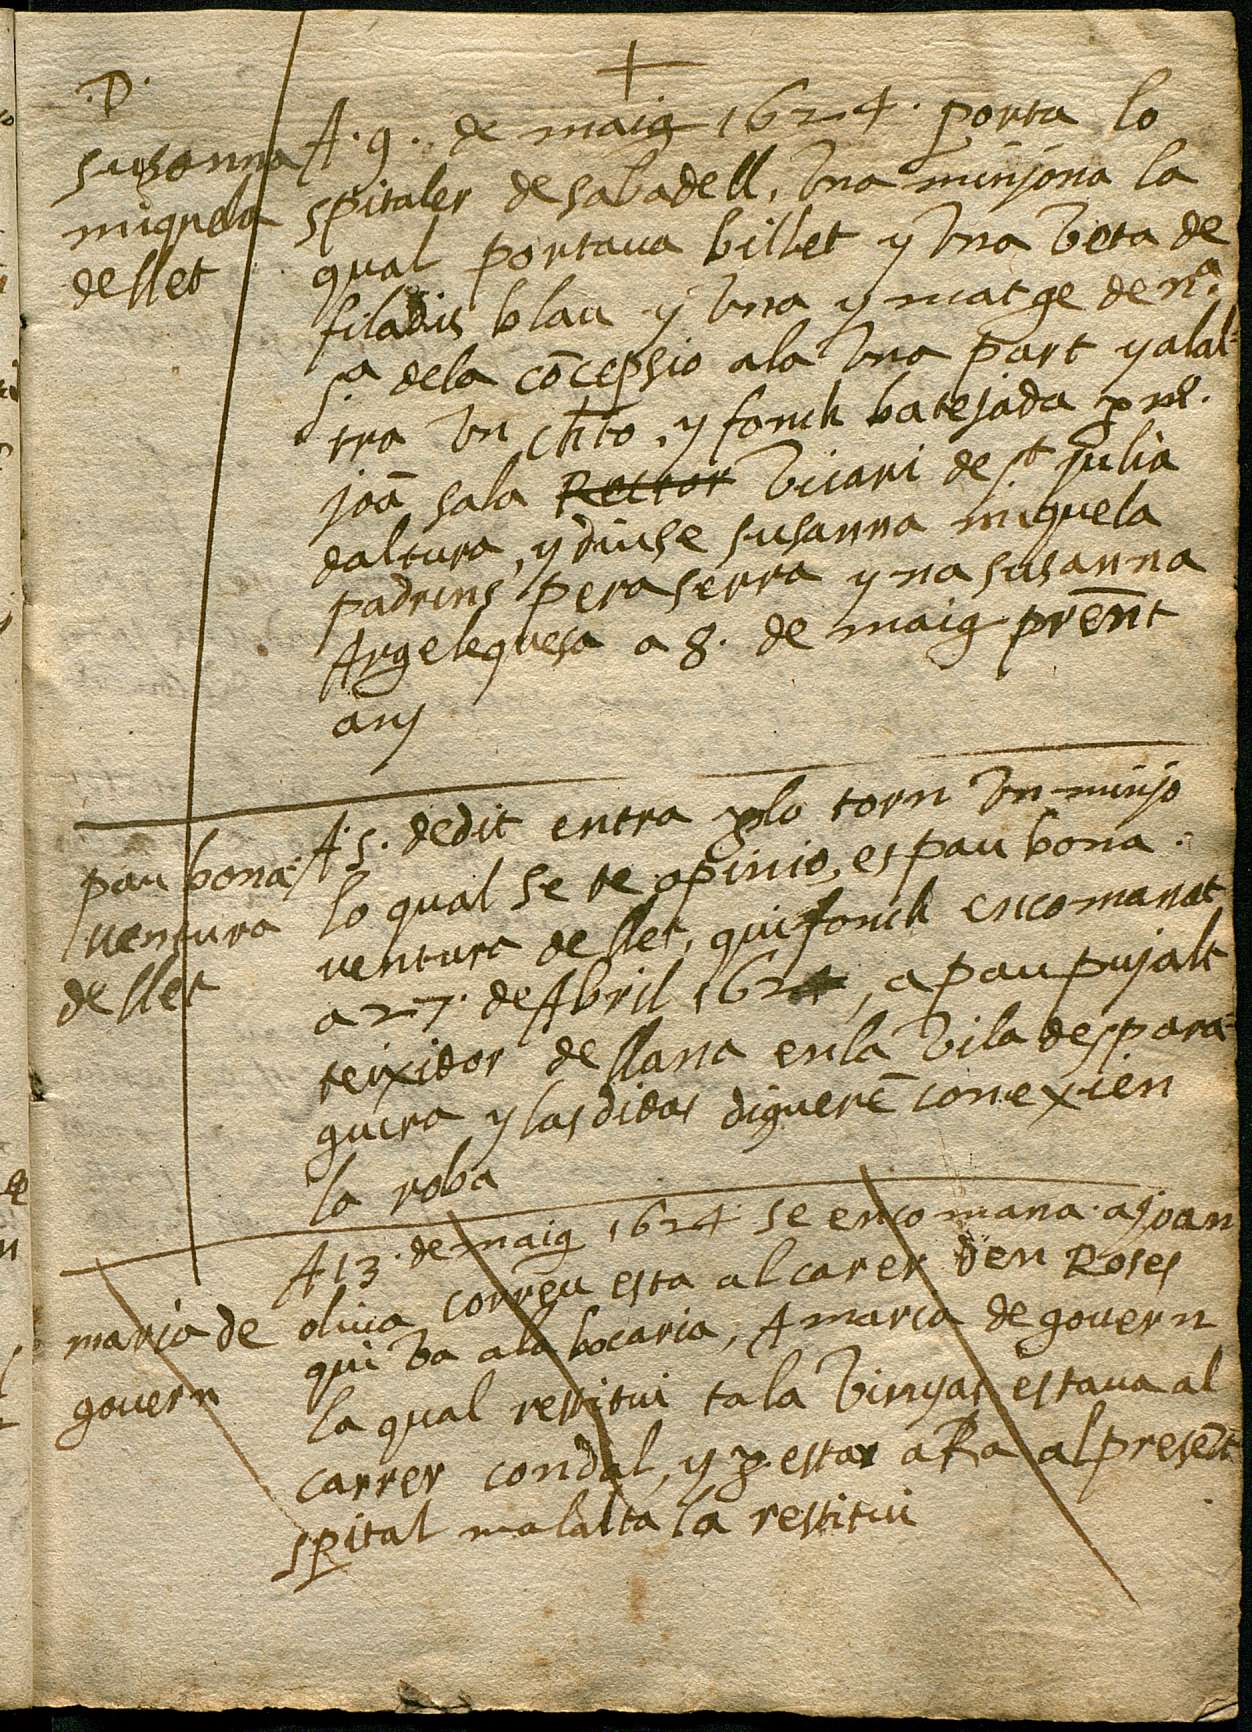 .D.
susanna
miquela
de llet
A .9. de maig 1624. porta lo
spitaler de sabadell, Vna minjona la
qual portaua billet y Vna Veta de
filadis blau y Vna ymatge de nª.
sª. dela cōcepsio ala Vna part y alal=
tra Vn chto, y fonch batejada p mº.
joā sala Rector Vicari de st julia
daltura, y diuse susanna miquela
padrins pera serra y na susanna
Argeleguesa a 8. de maig prēnt
any
pau bona:
uentura
de llet
A 5. dedit entra plo torn Vn minjo
lo qual se te opinio, es pau bona.
uentura de llet, qui fonch encomanat
a 27. de Abril 1624, a pau pujalt
teixidor de llana enla Vila desppara=
guera y las didas digueren conexien
la roba
maria de
gouern
A 13. de maig 1624 se encomana. a joan
oliua correu esta al carer den Roses
qui Va ala bocaria, A maria de gouern
la qual restitui tala Vinyas estaua al
carrer condal, y p. estar ara al presēt
spital malalta la restitui